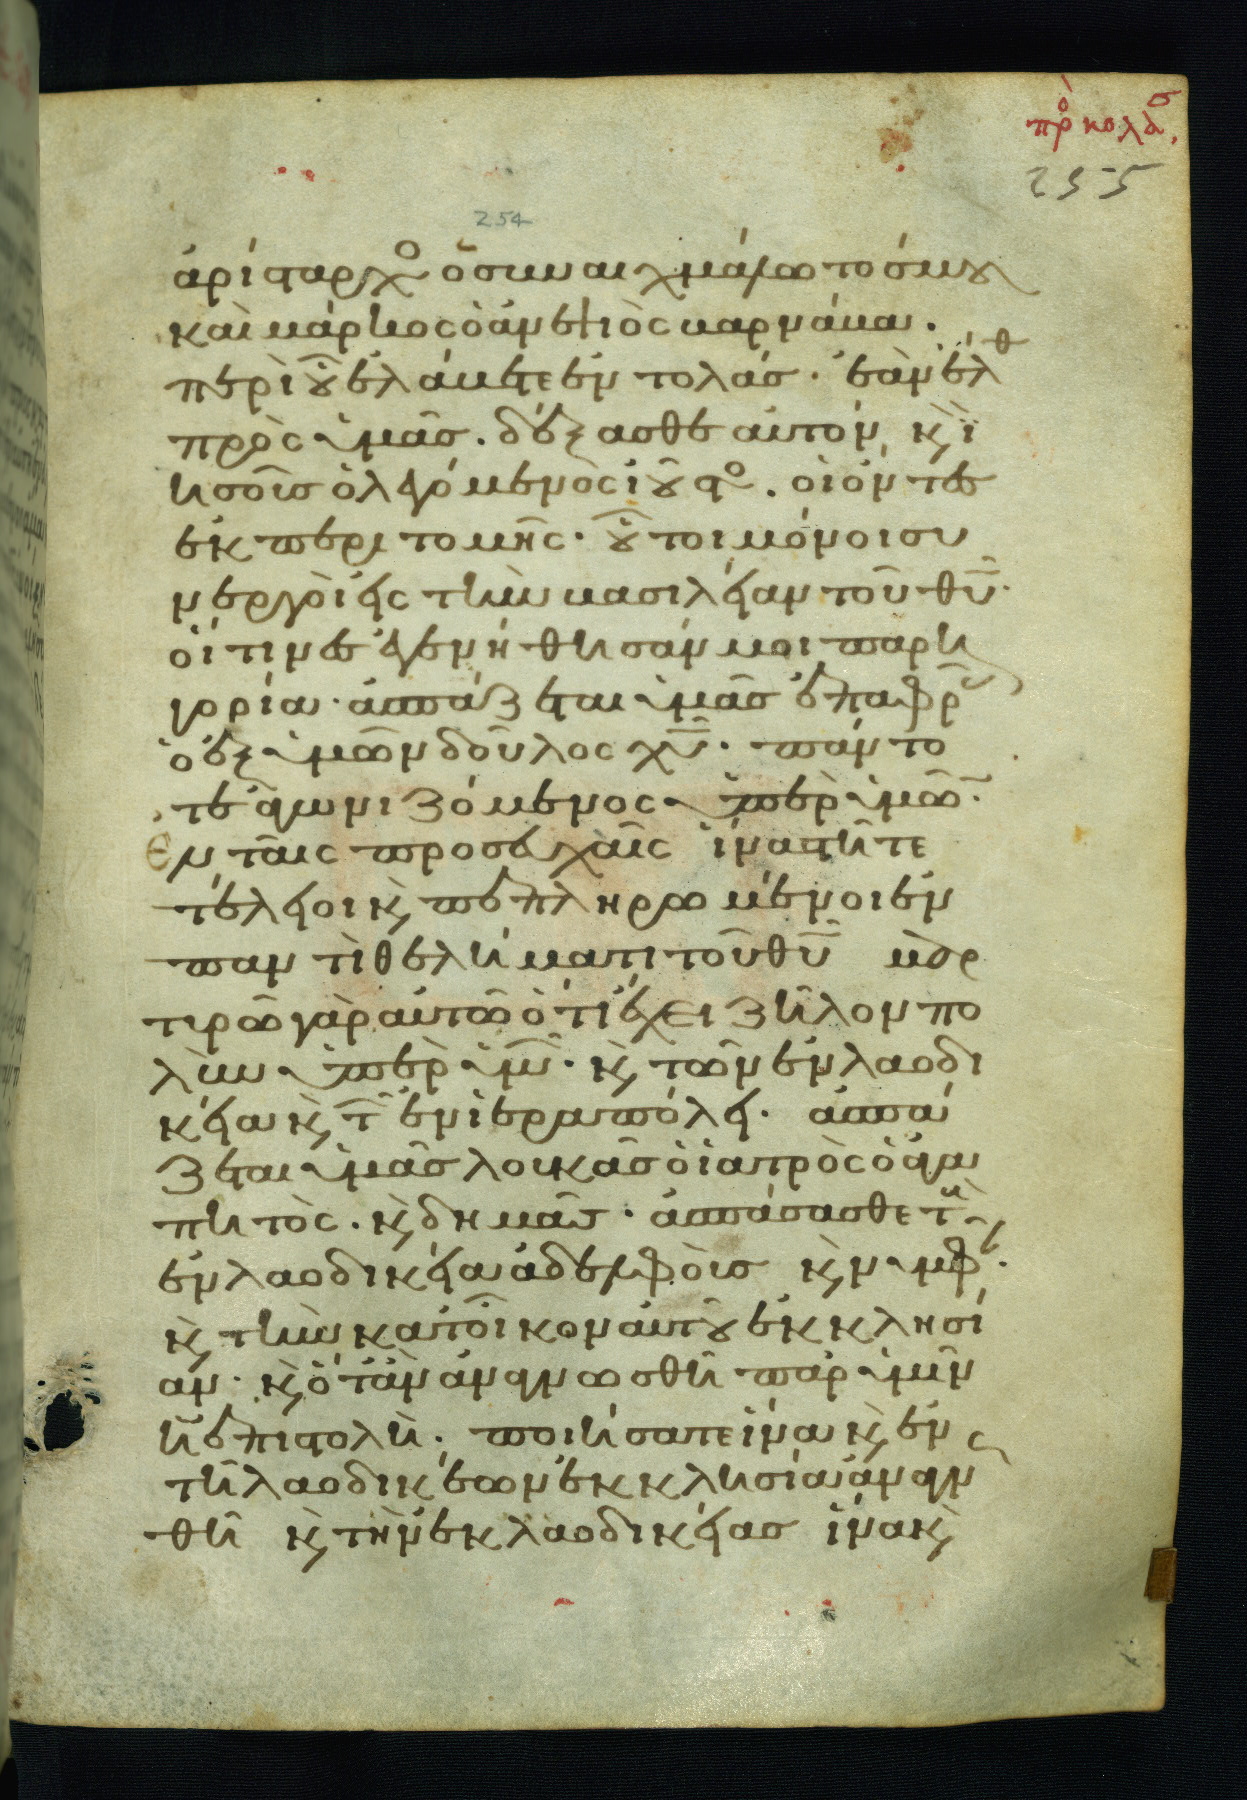 πρὸ κολασ
255
254
ἀρίσταρχο ὁ συναιχμάλωτόσ μου
καὶ μάρκος ὁ ἀνεψιὸς βαρνάβα.
περὶ οὗ ἐλάβετε ἐντολάσ. ἐὰν ἔλθ
πρὸς ὑμᾶσ. δέξασθε αὐτόν, κ̀ ἰ
ησοῦσ ὁ λεγόμενὸς ἰοῦστο. οἱ ὄντεσ
ἐκ περιτομῆς. οὗτοι μόνοι συ
νεργοὶ εἰς τὴν βασιλείαν τοῦ θῦ.
οἵτινεσ ἐγενήθησάν μοι παρη
γορία. ἀσπάζεται ὑμᾶσ ἐπαφρ
ὁ ἐξ ὑμῶν δοῦλος χῦ. πάντο
τε ἀγωνιζόμενος ὑπὲρ ὑμῶ.
Ἐν ταῖς προσευχαῖς ἵνα στῆτε
τέλειοι κ̀ πεπληρωμένοι ἐν
παντὶ θελήματι τοῦ θῦ μαρ
τυρῶ γὰρ αὐτῶ ὅτι ἔχει ζῆλον πο
λὺν ὑπὲρ ὑμῶ. κ̀ τῶν ἐν λαοδι
κεία κ̀ τ ἐν ἱεραπόλει. ἀσπά
ζεται ὑμᾶσ λουκᾶσ ὁ ἰατρὸς ὁ ἀγα
πητὸς. κ̀ δημᾶσ. ἀσπάσασθε τοὺς
ἐν λαοδικεία ἀδελφοὺσ κ̀ νυμφ.
κ̀ τὴν κατ οἶκον αὐτοῦ ἐκκλησί
αν. κ̀ ὅταν ἀναγνωσθῆ παρ ὑμῖν
ἡ ἐπιστολὴ. ποιήσατε ἵνα κ̀ ἐν
τῆ λαοδικέων ἐκκλησία ἀναγνωσ
θῆ κ̀ τὴν ἐκ λαοδικείασ ἵνα κ̀